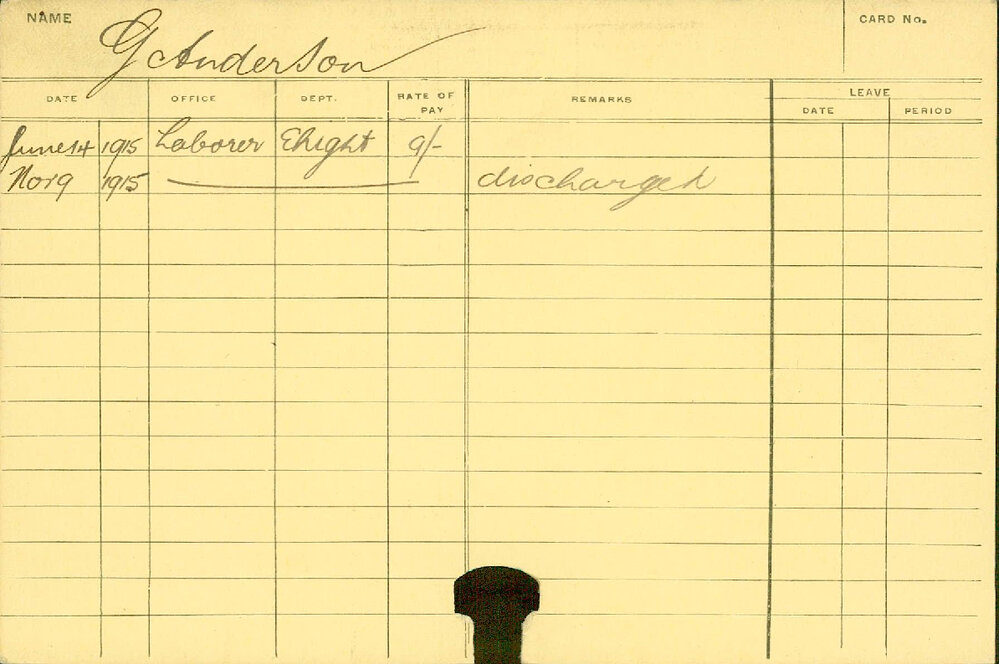 NAME
G Anderson
CARD No.
DATE OFFICE DEPT. RATE OF PAY REMARKS LEAVE
DATE PERIOD
June 14 1915 Laborer Elight 9/-
Nov 9 1915 discharged